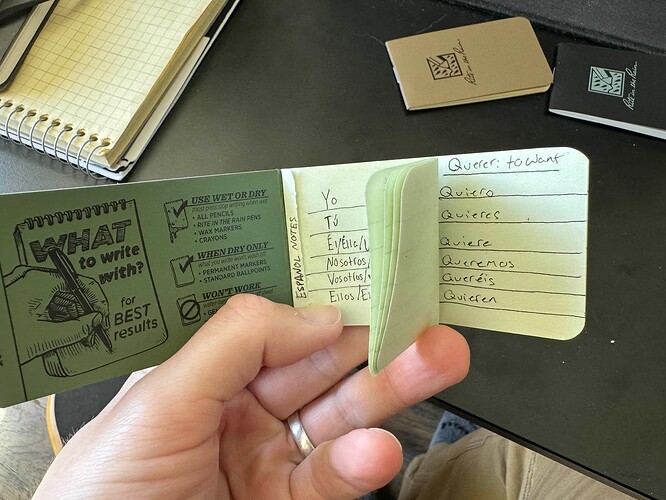 Rite in the Rain
Rite in the Rain
WHAT
to write
with?
for
BEST
results
USE WET OR DRY
• ALL PENCILS
• RITE IN THE RAIN PENS
• WAX MARKERS
• CRAYONS
WHEN DRY ONLY
• PERMANENT MARKERS
• STANDARD BALLPOINTS
WON'T WORK
ESPAÑOL NOTES
Yo
Tú
Él/Ella/
Nosotros/
Vosotros/
Ellos/
Querer: to want
Quiero
Quieres
Quiere
Queremos
Queréis
Quieren